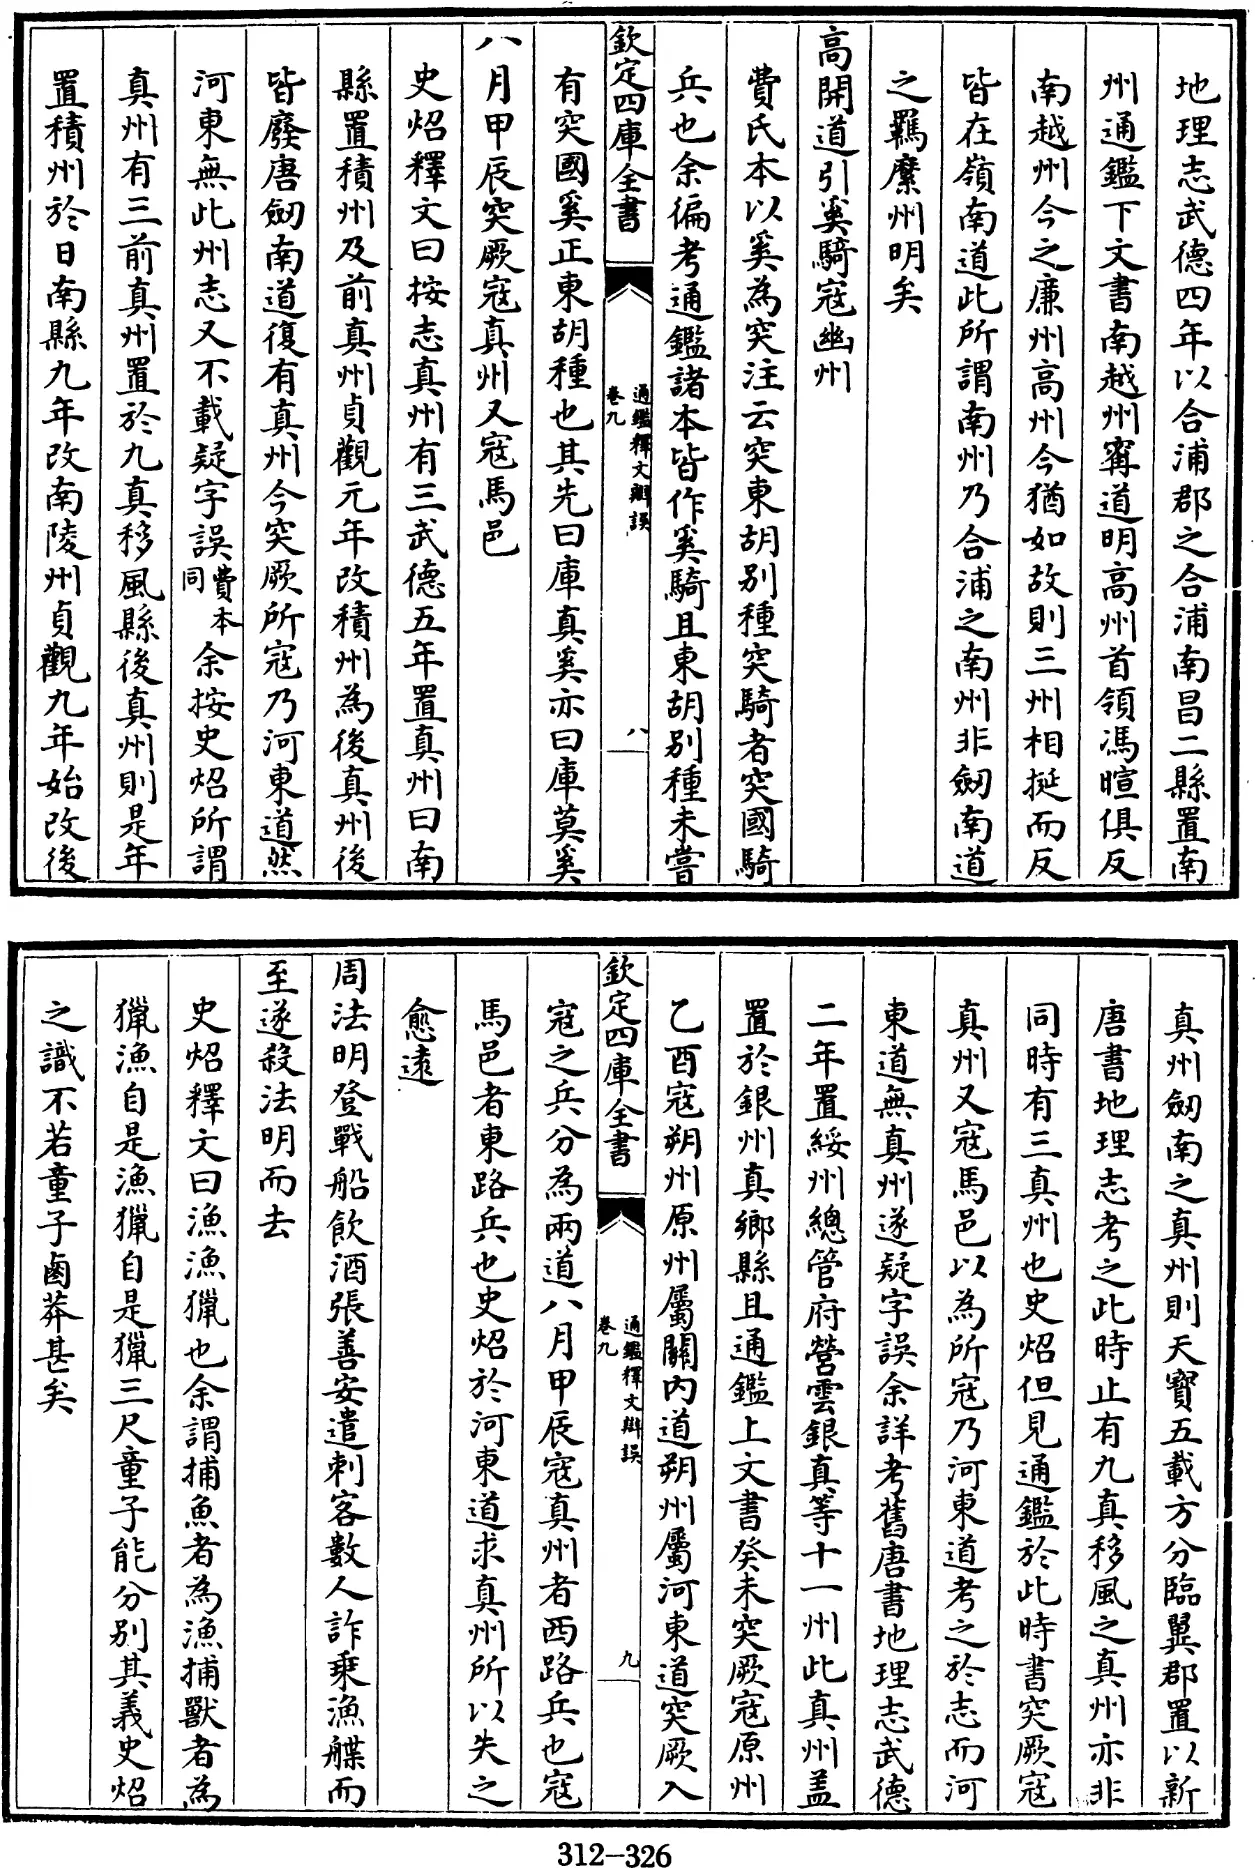 地理志武德四年以合浦郡之合浦南昌二縣置南
州通鑑下文書南越州甯道明高州首領馮暄俱反
南越州今之廉州高州今猶如故則三州相挻而反
皆在嶺南道此所謂南州乃合浦之南州非劒南道
之羈縻州明矣
高開道引奚騎寇幽州
費氏本以奚為突注云突東胡别種突騎者突國騎
兵也余徧考通鑑諸本皆作奚騎且東胡别種未嘗
欽定四庫全書
通鑑釋文辯誤
卷九
八
有突國奚正東胡種也其先曰庫真奚亦曰庫莫奚
八月甲辰突厥寇真州又寇馬邑
史炤釋文曰按志真州有三武德五年置真州曰南
縣置積州及前真州貞觀元年改積州為後真州後
皆廢唐劒南道復有真州今突厥所寇乃河東道然
河東無此州志又不載疑字誤費本同余按史炤所謂
真州有三前真州置於九真移風縣後真州則是年
置積州於日南縣九年改南陵州貞觀九年始改後
真州劒南之真州則天寶五載方分臨翼郡置以新
唐書地理志考之此時止有九真移風之真州亦非
同時有三真州也史炤但見通鑑於此時書突厥寇
真州又寇馬邑以為所寇乃河東道考之於志而河
東道無真州遂疑字誤余詳考舊唐書地理志武德
二年置綏州總管府營雲銀真等十一州此真州盖
置於銀州真鄉縣且通鑑上文書癸未突厥寇原州
乙酉寇朔州原州屬關内道朔州屬河東道突厥入
欽定四庫全書
通鑑釋文辯誤
卷九
九
寇之兵分為兩道八月甲辰寇真州者西路兵也寇
馬邑者東路兵也史炤於河東道求真州所以失之
愈遠
周法明登戰船飲酒張善安遣刺客數人詐乘漁艓而
至遂殺法明而去
史炤釋文曰漁漁獵也余謂捕魚者為漁捕獸者為
獵漁自是漁獵自是獵三尺童子能分别其義史炤
之識不若童子鹵莽甚矣
312-326